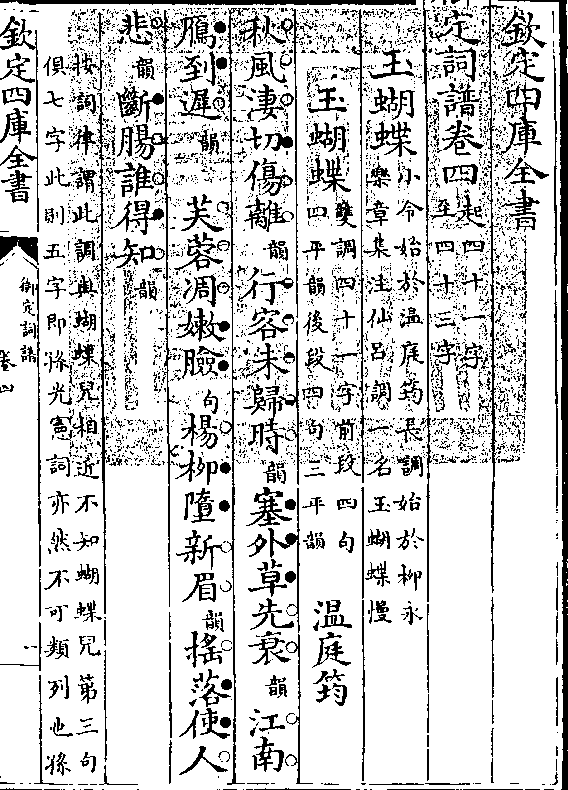 欽定四庫全書
定詞譜卷四起四十一字至四十三字
玉蝴蝶小令始於溫庭筠長調始於柳永樂章集注仙呂調一名玉蝴蝶慢
玉蝴蝶雙調四十一字前段四句四平韻後段四句三平韻 溫庭筠
秋風淒切傷離韻行客未歸時韻塞外草先衰韻江南
鴈到遲韻 芙蓉凋嫩臉句楊柳墮新眉韻搖落使人
悲韻斷腸誰得知韻
按詞律謂此調與蝴蝶兒相近不知蝴蝶兒第三句
俱七字此則五字即孫光憲詞亦然不可類列也孫
欽定四庫全書
御定詞譜
卷四
一